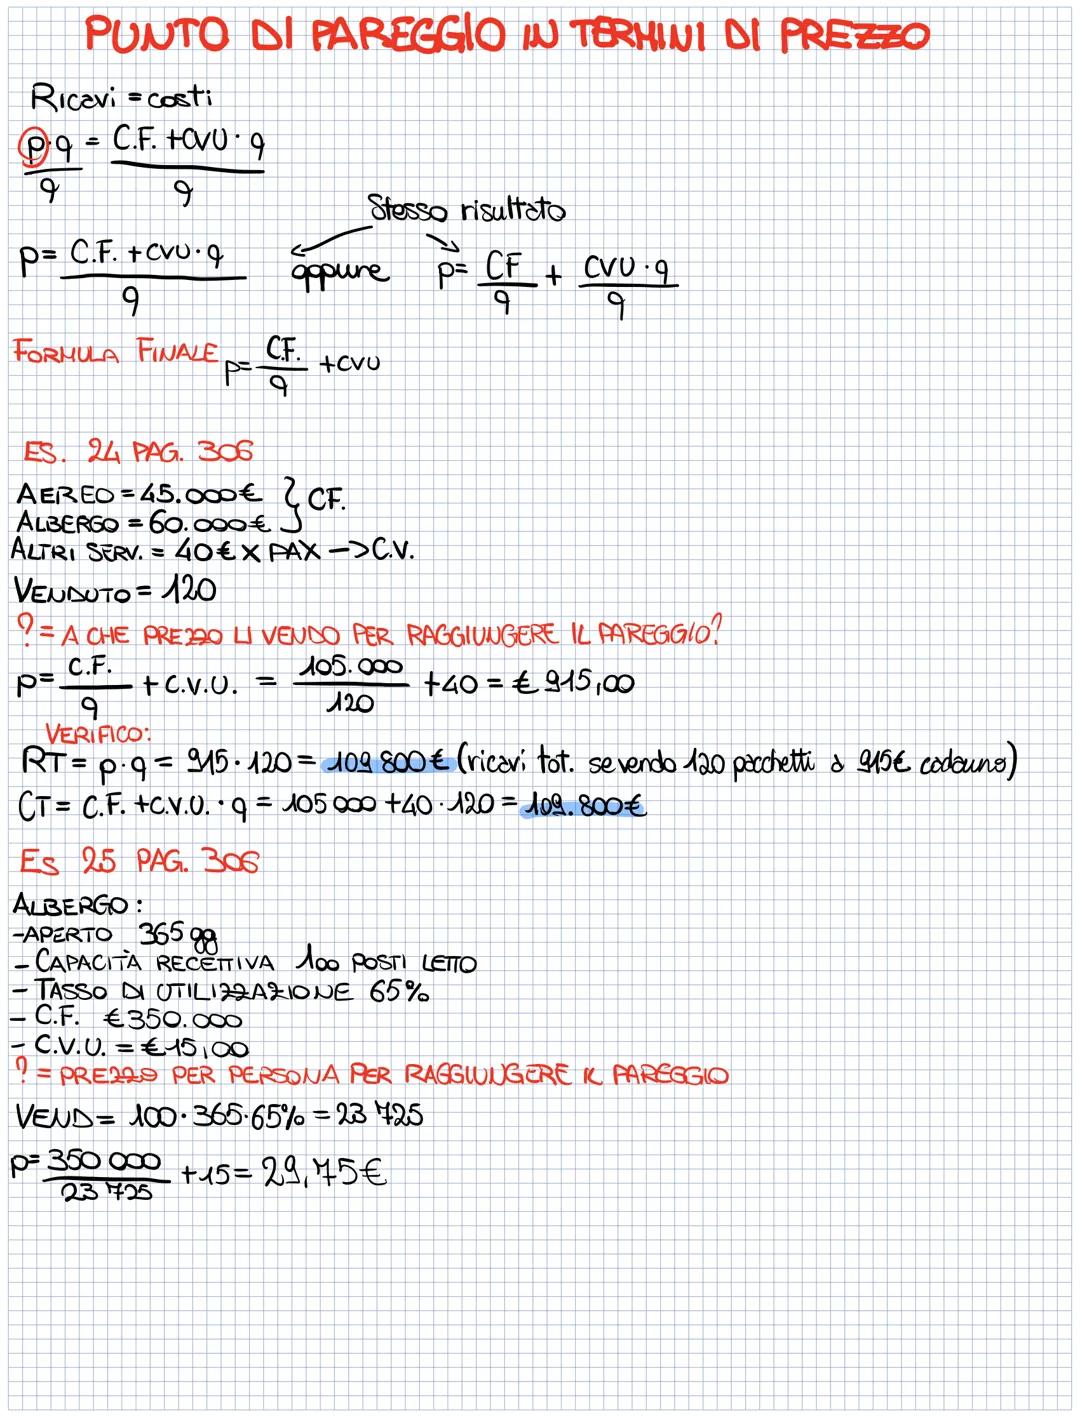 PUNTO DI PAREGGIO IN TERMINI DI PREZZO
Ricavi = costi
p·q = C.F. + CVU · q
q q
Stesso risultato
p = C.F. + CVU · q oppure p = CF + CVU · q
q q q
FORMULA FINALE p = C.F. + CVU
q
ES. 24 PAG. 306
AEREO = 45.000€ } CF.
ALBERGO = 60.000€
ALTRI SERV. = 40€ X PAX -> C.V.
VENDUTO = 120
? = A CHE PREZZO LI VENDO PER RAGGIUNGERE IL PAREGGIO?
p = C.F. + C.V.U. = 105.000 + 40 = € 915,00
q 120
VERIFICO:
RT = p·q = 915·120 = 109 800€ (ricavi tot. se vendo 120 pacchetti a 915€ cadauno)
CT = C.F. + C.V.U. · q = 105 000 + 40 · 120 = 109.800€
Es 25 PAG. 306
ALBERGO:
- APERTO 365 gg
- CAPACITÀ RECETTIVA 100 POSTI LETTO
- TASSO DI UTILIZZAZIONE 65%
- C.F. € 350.000
- C.V.U. = € 15,00
? = PREZZO PER PERSONA PER RAGGIUNGERE IL PAREGGIO
VEND = 100·365·65% = 23 725
p = 350 000 + 15 = 29,75€
23 725